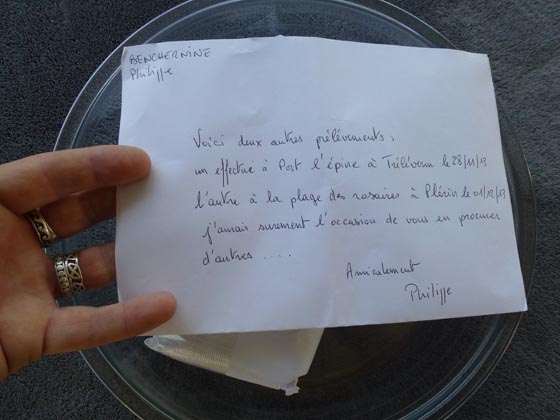 BENCHERNINE
Philippe
Voici deux autres prélévements :
un effectué à Port l'épine à Trélévern le 28/11/13
l'autre à la plage des rosaires à Plérin le 01/12/13
j'aurais surement l'occasion de vous en procurer
d'autres ....
Amicalement
Philippe